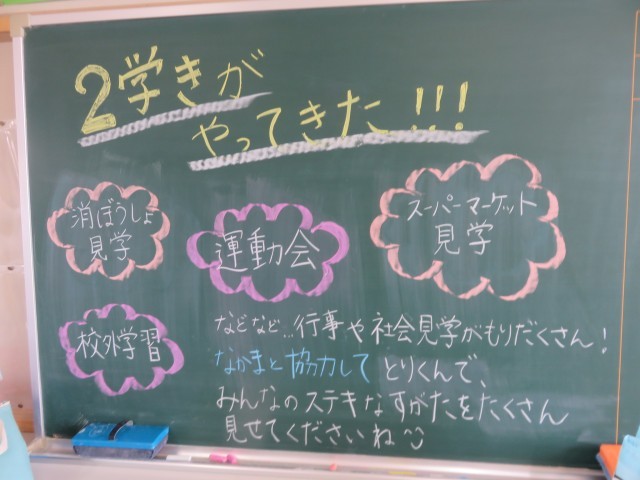 2学きが
やってきた!!!
消ぼうしょ
見学
運動会
スーパーマーケット
見学
校外学習
などなど…行事や社会見学がもりだくさん!
なかまと協力して とりくんで、
みんなのステキなすがたをたくさん
見せてくださいね